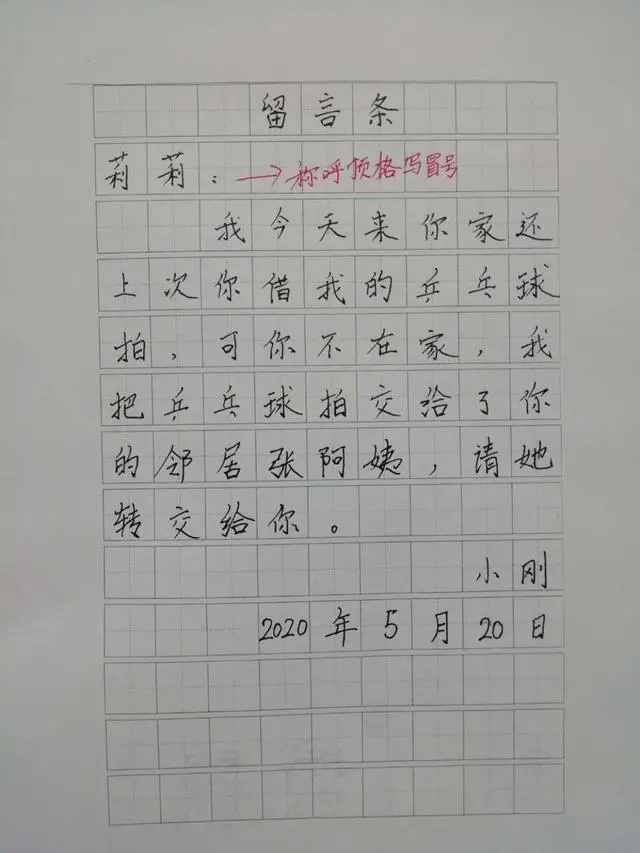 留言条
莉莉：→称呼顶格写冒号
我今天来你家还
上次你借我的乒乓球
拍，可你不在家，我
把乒乓球拍交给了你
的邻居张阿姨，请她
转交给你。
小刚
2020年5月20日